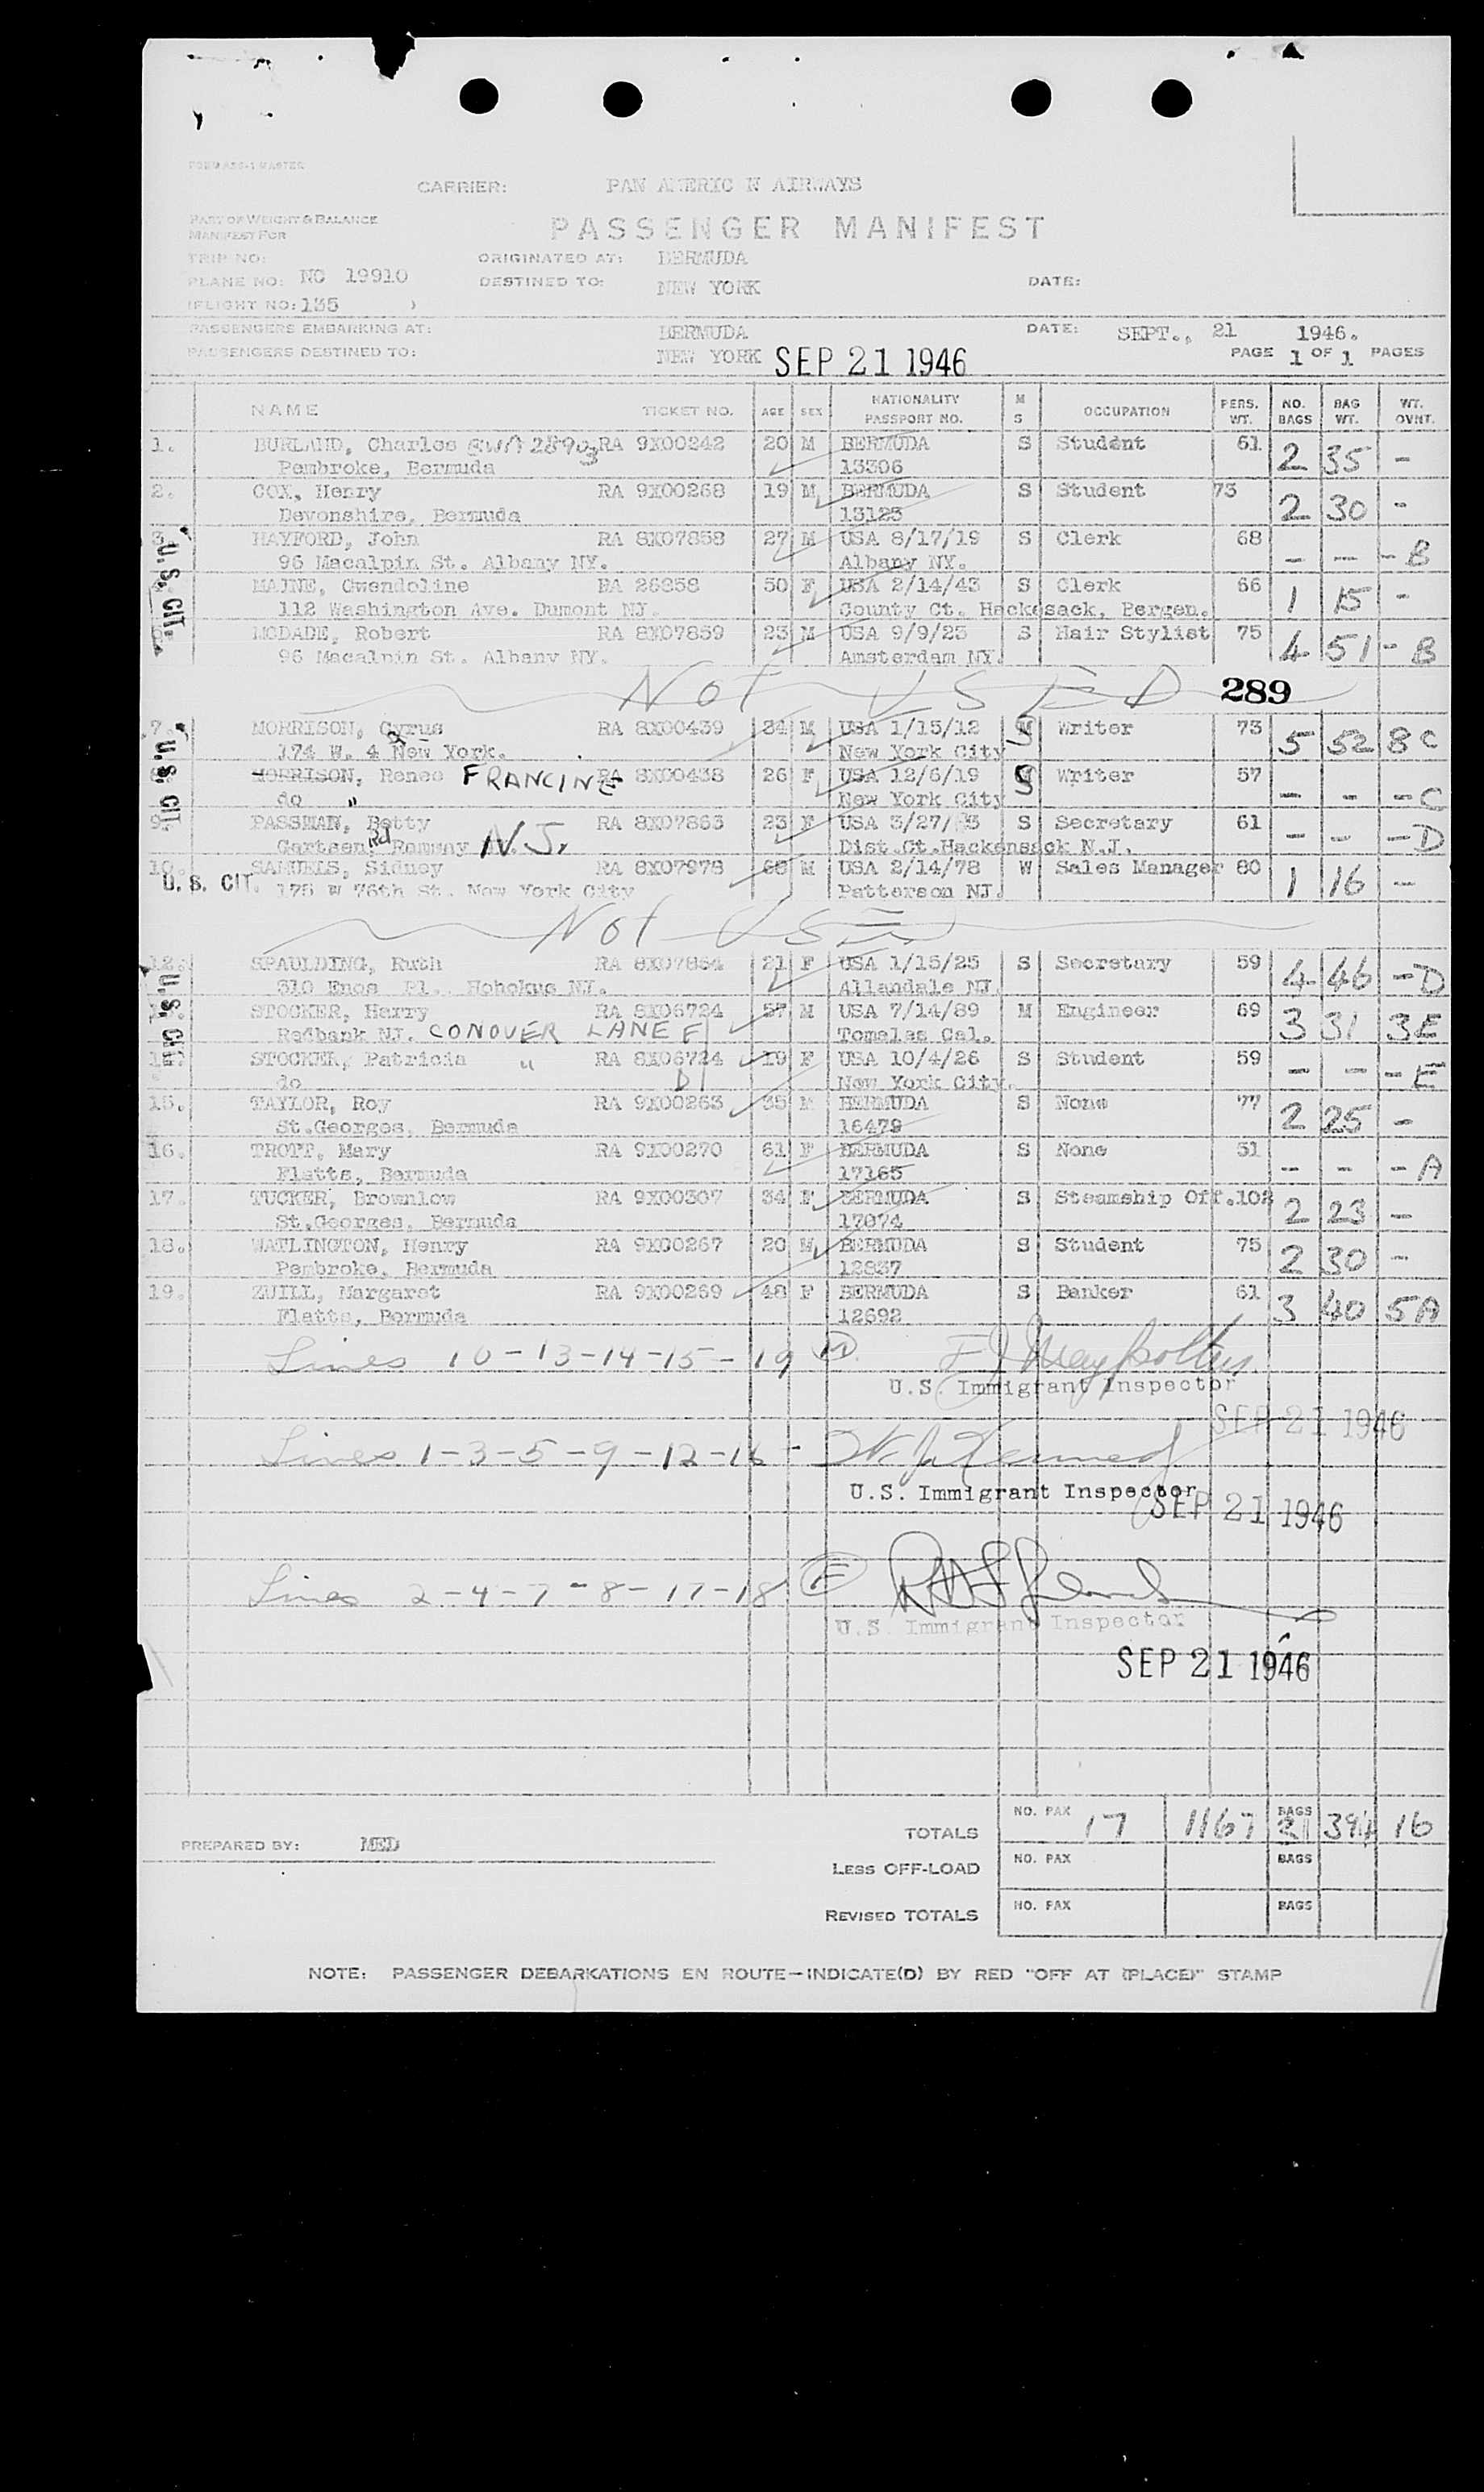 FORM ASD-1 MASTER
CARRIER: PAN AMERIC N AIRWAYS
PART OF WEIGHT & BALANCE
MANIFEST FOR
PASSENGER MANIFEST
TRIP NO: ORIGINATED AT: BERMUDA
PLANE NO: NC 19910 DESTINED TO: NEW YORK DATE:
(FLIGHT NO: 135 )
PASSENGERS EMBARKING AT: BERMUDA DATE: SEPT., 21 1946.
PASSENGERS DESTINED TO: NEW YORK SEP 21 1946 PAGE 1 OF 1 PAGES
NAME TICKET NO. AGE SEX NATIONALITY PASSPORT NO. M S OCCUPATION PERS. WT. NO. BAGS BAG WT. WT. OVHT.
1. BURLAND, Charles RA 9X00242 20 M BERMUDA S Student 61 2 35 -
Pembroke, Bermuda 13306
2. COX, Henry RA 9X00268 19 M BERMUDA S Student 73 2 30 -
Devonshire, Bermuda 13125
3. HAYFORD, John RA 8X07858 27 M USA 8/17/19 S Clerk 68 - - - B
96 Macalpin St. Albany NY. Albany NY.
U.S. CIT.
MAINE, Gwendoline BA 26358 50 F USA 2/14/43 S Clerk 66 1 15 -
112 Washington Ave. Dumont NJ. County Ct. Hackesack, Bergen.
MCDADE, Robert RA 8X07859 23 M USA 9/9/23 S Hair Stylist 75 4 51 - B
96 Macalpin St. Albany NY. Amsterdam NY.
NOT USED 289
7. MORRISON, Cyrus RA 8X00439 34 M USA 1/15/12 S Writer 73 5 52 8 C
174 W. 4 New York. New York City
U.S. CIT.
MORRISON, Renee FRANCINE RA 8X00438 26 F USA 12/6/19 S Writer 57 - - - C
do " New York City
9. PASSMAN, Betty RA 8X07863 23 F USA 3/27/ 3 S Secretary 61 - - - D
Rd Ramway N.J. Dist.Ct.Hackensack N.J.
10. SAMUELS, Sidney RA 8X07978 68 M USA 2/14/78 W Sales Manager 80 1 16 -
U. S. CIT. 175 W 76th St. New York City Patterson NJ.
NOT USED
12. SPAULDING, Ruth RA 8X07864 21 F USA 1/15/25 S Secretary 59 4 46 - D
310 Enos Pl. Hohokus NJ. Allandale NJ.
U.S. CIT.
STOCKER, Harry RA 8X06724 57 M USA 7/14/89 M Engineer 69 3 31 3 E
Redbank NJ. CONOVER LANE F Tomales Cal.
STOCKER, Patricia " RA 8X06724 19 F USA 10/4/26 S Student 59 - - - E
do D New York City.
15. TAYLOR, Roy RA 9X00263 35 M BERMUDA S None 77 2 25 -
St.Georges, Bermuda 16479
16. TROTT, Mary RA 9X00270 61 F BERMUDA S None 51 - - - A
Flatts, Bermuda 17165
17. TUCKER, Brownlow RA 9X00307 34 F BERMUDA S Steamship Off. 102 2 23 -
St.Georges, Bermuda 17074
18. WATLINGTON, Henry RA 9X00267 20 M BERMUDA S Student 75 2 30 -
Pembroke, Bermuda 12837
19. ZUILL, Margaret RA 9X00269 48 F BERMUDA S Banker 61 3 40 5 A
Flatts, Bermuda 12692
Lines 10-13-14-15-19
U.S. Immigrant Inspector
SEP 21 1946
Lines 1-3-5-9-12-16 - W. J. Kennedy
U.S. Immigrant Inspector
SEP 21 1946
Lines 2-4-7-8-17-18 F
U.S. Immigrant Inspector
SEP 21 1946
PREPARED BY: MED
TOTALS NO. PAX 17 1167 BAGS 31 394 16
LESS OFF-LOAD NO. PAX BAGS
REVISED TOTALS NO. PAX BAGS
NOTE: PASSENGER DEBARKATIONS EN ROUTE—INDICATE(D) BY RED "OFF AT (PLACE)" STAMP